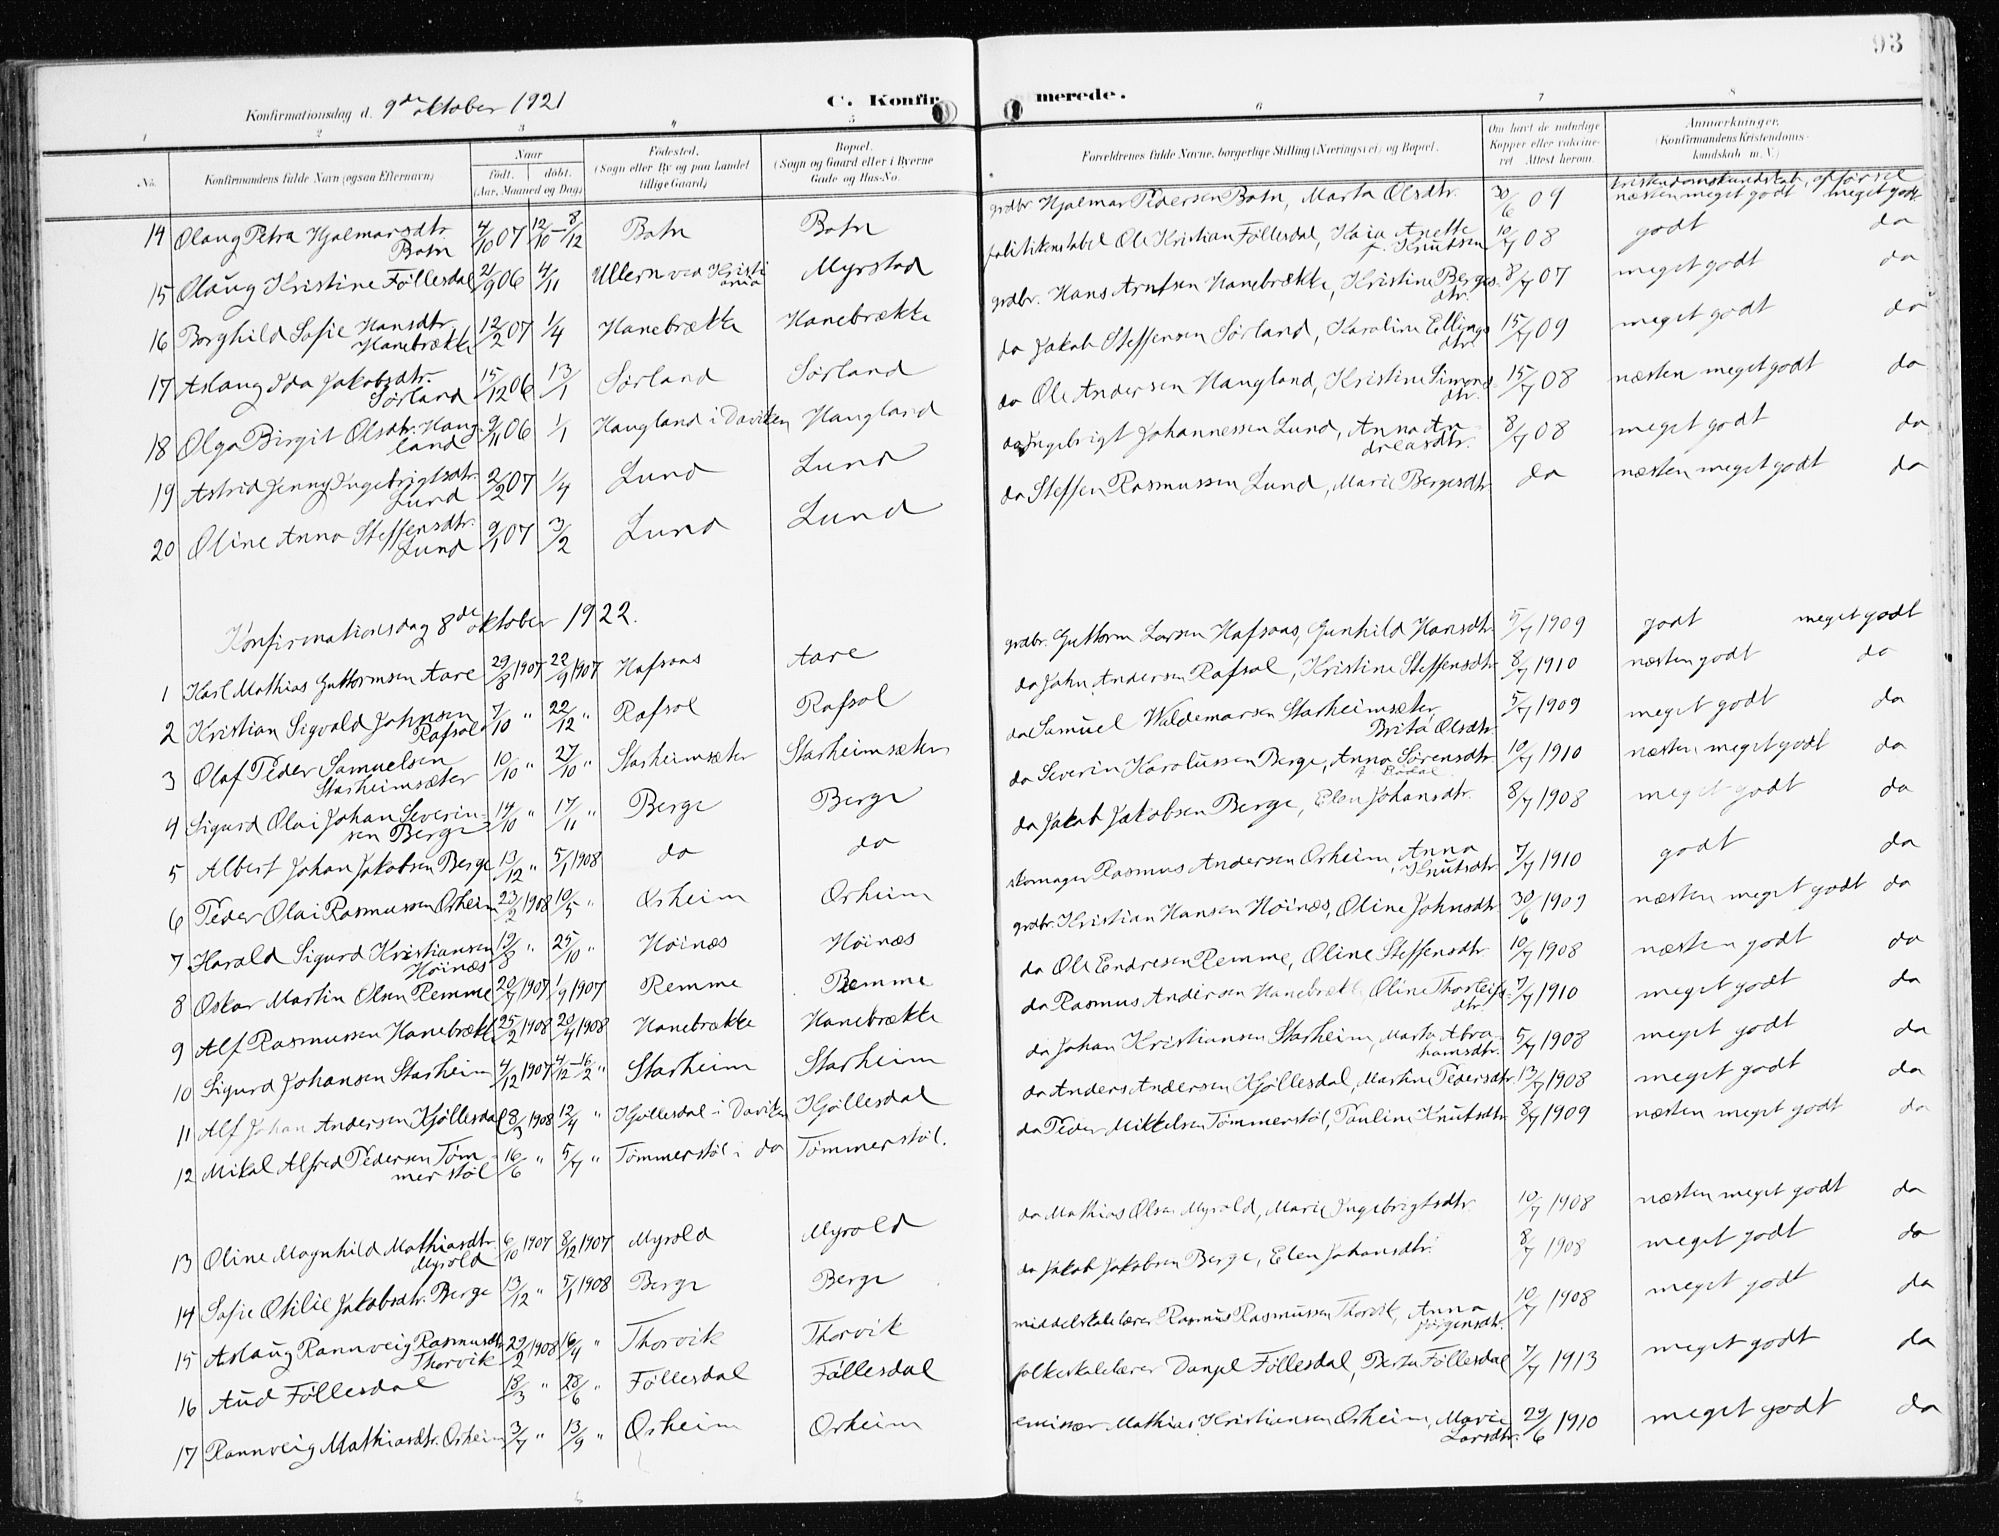 93
Konfirmationsdag d. 9de oktober 1921
C. Konfirmerede.
1 2 3 4 5 6 7 8
No. Konfirmandens fulde Navn (ogsaa Efternavn) Naar født. døbt. (Aar, Maaned og Dag) Fødested. (Sogn eller By og paa Landet tillige Gaard) Bopæl. (Sogn og Gaard eller i Byerne Gade og Hus-No. Forældrenes fulde Navne, borgerlige Stilling (Næringsvei) og Bopæl. Om havt de naturlige Kopper eller vaccineret Attest herom. Anmerkninger. (Konfirmandens Kristendomskundskab m. V.)
kristendomskundskab, opførsel
14 Olaug Petra Hjalmarsdtr. Botn 4/10 07 12/10 - 8/12 Botn Botn grdbr. Hjalmar Pedersen Botn, Marta Olsdtr. 30/6 09 næsten meget godt meget godt
15 Olaug Kristine Föllesdal 21/9 06 4/11 Ullern ved Kristiania Myrstad politikonstabel Ole Kristian Föllesdal, Kaia Anette f. Knutsen 10/7 08 godt da
16 Borghild Sofie Hansdtr. Hanebrække 12/2 07 1/4 Hanebrække Hanebrække grdbr. Hans Arntsen Hanebrække, Kristine Bergesdtr. 8/7 07 meget godt da
17 Aslaug Ida Jakobsdtr. Sörland 15/12 06 13/1 Sörland Sörland da Jakob Steffensen Sörland, Karoline Ellingsdtr. 15/7 09 meget godt da
18 Olga Birgit Olsdtr. Haugland 9/11 06 1/1 Haugland i Daviken Haugland da Ole Andersen Haugland, Kristine Simonsdtr. 15/7 08 næsten meget godt da
19 Astrid Jenny Ingebrigtsdtr. Lund 2/2 07 1/4 Lund Lund da Ingebrigt Johannessen Lund, Anna Andreasdtr. 8/7 08 meget godt da
20 Oline Anna Steffensdtr. Lund 9/1 07 3/2 Lund Lund da Steffen Rasmussen Lund, Marie Bergesdtr. da næsten meget godt da
Konfirmationsdag 8de oktober 1922.
1 Karl Mathias Guttormsen Aare 29/8 1907 22/9 1907 Hafsaas Aare grdbr. Guttorm Larsen Hafsaas, Gunhild Hansdtr. 5/7 1909 godt meget godt
2 Kristian Sigvald Johnsen Rafsol 7/10 " 22/12 " Rafsol Rafsol da John Andersen Rafsol, Kristine Steffensdtr. 8/7 1910 næsten godt da
3 Olaf Peder Samuelsen Starheimsæter 10/10 " 27/10 " Starheimsæter Starheimsæter da Samuel Waldemarsen Starheimsæter, Brita Olsdtr. 5/7 1909 meget godt da
4 Sigurd Olai Johan Severinsen Berge 14/10 " 17/11 " Berge Berge da Severin Karolussen Berge, Anna Sörensdtr. 10/7 1910 næsten meget godt da
5 Albert Johan Jakobsen Berge 13/12 " 5/1 1908 da da da Jakob Jakobsen Berge, Elen Johansdtr. 8/7 1908 meget godt da
6 Peder Olai Rasmussen Orheim 23/2 1908 10/5 " Orheim Orheim skomager Rasmus Andersen Orheim, Anna Knutsdtr. 7/7 1910 godt da
7 Harald Sigurd Kristiansen Höinæs 19/8 " 25/10 " Höinæs Höinæs grdbr. Kristian Hansen Höinæs, Oline Johnsdtr. 30/6 1909 næsten meget godt da
8 Oskar Martin Olsen Remme 20/7 1907 1/9 1907 Remme Remme da Ole Endresen Remme, Oline Steffensdtr. 10/7 1908 næsten godt da
9 Alf Rasmussen Hanebrække 25/2 1908 20/4 1908 Hanebrække Hanebrække da Rasmus Andersen Hanebrække, Oline Thorleifsdtr. 7/7 1910 meget godt da
10 Sigurd Johansen Starheim 4/12 1907 4/12 - 16/2 " Starheim Starheim da Johan Kristiansen Starheim, Marta Abrahamsdtr. 5/7 1908 meget godt da
11 Alf Johan Andersen Kjöllesdal 8/3 1908 12/4 " Kjöllesdal i Daviken Kjöllesdal da Anders Andersen Kjöllesdal, Martine Pedersdtr. 13/7 1908 meget godt da
12 Mikal Alfred Pedersen Tömmerstöl 16/6 " 5/7 " Tömmerstöl i da Tömmerstöl. da Peder Mikkelsen Tömmerstöl, Pauline Knutsdtr. 8/7 1909 næsten meget godt da
13 Oline Magnhild Mathiasdtr. Myrold 6/10 1907 8/12 1907 Myrold Myrold da Mathias Olsen Myrold, Marie Ingebrigtsdtr. 10/7 1908 næsten meget godt da
14 Sofie Otilie Jakobsdtr. Berge 13/12 " 5/1 1908 Berge Berge da Jakob Jakobsen Berge, Elen Johansdtr. 8/7 1908 meget godt da
15 Aslaug Rannveig Rasmusdtr. Thorvik 29/2 1908 16/4 " Thorvik Thorvik middelskolelærer Rasmus Rasmussen Thorvik, Anna Jörgensdtr. 10/7 1908 meget godt da
16 Aud Föllesdal 18/3 " 28/6 " Föllesdal Föllesdal folkeskolelærer Danjel Föllesdal, Berta Föllesdal 7/7 1913 meget godt da
17 Rannveig Mathiasdtr. Orheim 3/7 " 13/9 " Orheim Orheim emissær Mathias Kristiansen Orheim, Marie Larsdtr. 29/6 1910 meget godt da